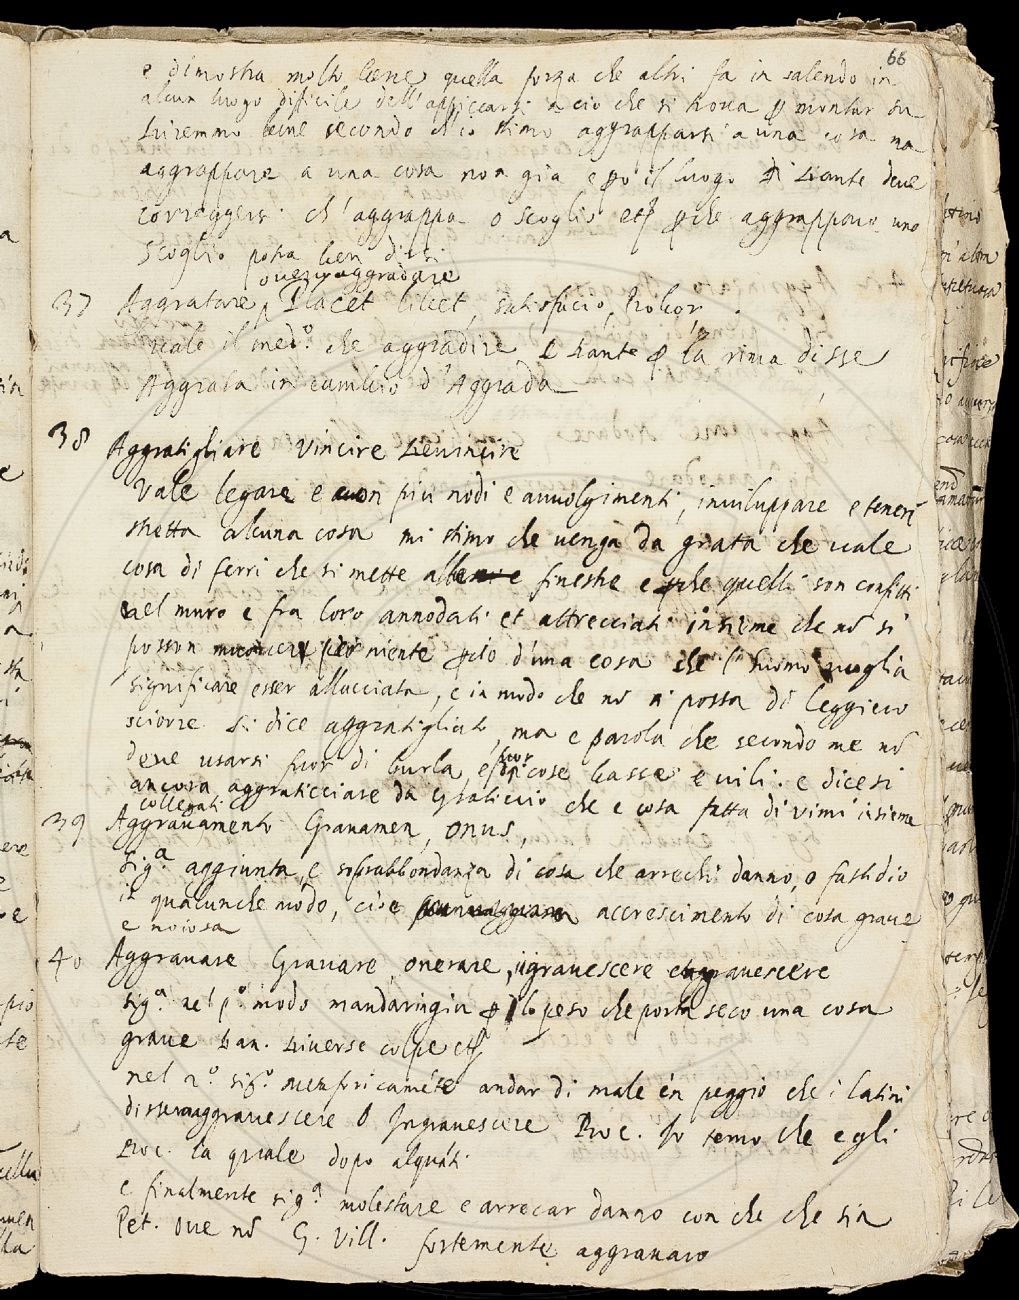 66
e dimostra molto bene quella forza che altri fa in salendo in
alcun luogo dificile dell'appiccarsi a ciò che si troua p montar su
Diremmo bene secondo ch'io stimo aggrapparsi a una cosa ma
aggrappare a una cosa non già e pò il luogo di Dante deue
correggersi ch'aggrappa o scoglio etc pche aggrappare uno
scoglio potrà ben dirsi
ouero aggradare
37 Aggratare Placet libet, satisfacio, probor
uale il med.o che aggradire e Dante p la rima disse
Aggrata in cambio d'Aggrada
38 Aggratigliare Vincire Deuincire
Vale legare e con più nodi e auuolgimenti, inuiluppare e tener
stretta alcuna cosa mi stimo che uenga da grata che uale
cosa di ferri che si mette alle finestre e pche quelli son confitti
nel muro e fra loro annodati et attrecciati insieme che nō si
posson muouere per niente pciò d'una cosa che l'huomo uoglia
significare esser allacciata, e in modo che nō si possa di leggiero
sciorre si dice aggratigliato, ma e parola che secondo me nō
deue usarsi fuor di burla, e fuor di cose basse e uili. e dicesi
ancora aggraticciare da graticcio che e cosa fatta di uimi insieme
collegati
39 Aggrauamento Grauamen, onus,
sig.a aggiunta, e soprabbondanza di cosa che arrechi danno, o fastidio
in qualunche modo, cioè accrescimento di cosa graue
e noiosa
40 Aggrauare Grauare, onerare, ingrauescere aggrauescere
sig.a nel p.o modo mandar in giù p lo peso che porta seco una cosa
graue Dan. Diuerse colpe etc
nel 2.o sig.o metaforicamēte andar di male in peggio che i latini
dissero aggrauescere o Ingrauescere Boc. Io temo che egli
Boc. la quale dopo alquāti
e finalmente sig.a molestare e arrecar danno con che che sia
Pet. Oue nō G. Vill. fortemente aggrauaro